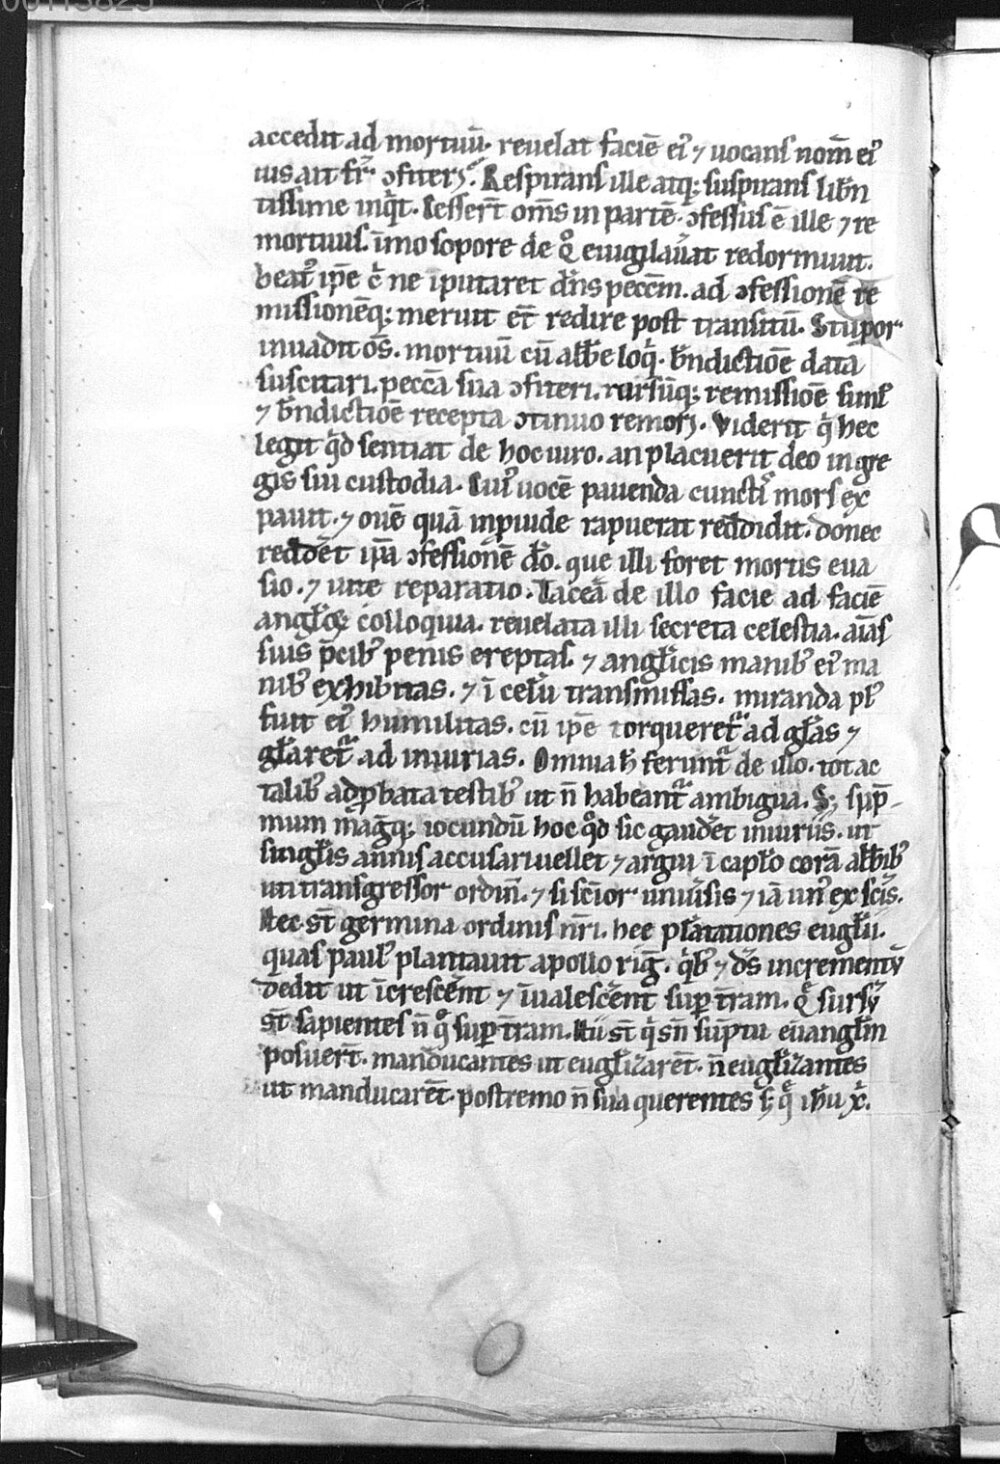 accedit ad mortuū. reuelat faciē eiꝰ ⁊ uocans nom̄ eiꝰ
ius ait fr̄ ɔfiter̄. Respirans ille atq; suspirans lib̄n
tissime inq̇t. Cesser̄t om̄s in partē. ɔfessus ē ille ⁊ re
mortuus. īmo sopore de q̊ euigilau̾at redormiuit.
beatꝰ ip̄e c̓ ne īputaret dn̄s pecc̄m. ad ɔfessionē re
missionēq; meruit et̄ redire post transitū. Stupor
inuadit o̅s. mortuū cū abb̄e loq̇. bn̄dictiōe data
suscitari. pecc̄a sua ɔfiteri. rursūq; remissiōe simł
⁊ bn̄dictiōe recepta ɔtinuo remori. Viderit q̇ hec
legit q̊d sentiat de hoc uiro. an placuerit deo in gre
gis sui custodia. Cuiꝰ uocē pauenda cunctis mors ex
pauit. ⁊ ouē quā inpuide rapuerat reddidit. donec
redd̾et ip̄a ɔfessionē dn̄o. que illi foret mortis eua
sio. ⁊ uite reparatio. Taceā de illo facie ad faciē
angl̄oꝝ colloquia. reuelata illi secreta celestia. aīas
suis p̄cibꝰ penis ereptas. ⁊ angl̄icis manibꝰ eiꝰ ma
nibꝰ exhibitas. ⁊ ī celū transmissas. miranda pł
fuit eiꝰ humilitas. cū ip̄e torqueret᷑ ad gl̄as ⁊
gl̄aret᷑ ad iniurias. Omnia h̄ ferunt᷑ de illo. tot ac
talibꝰ adꝓbata testibꝰ ut n̄ habeant᷑ ambigua. S; sup̄
mum magq; iocundū hoc q̊d sic gaud̾et iniuriis. ut
singl̄is annis accusari uellet ⁊ argui ī capłо corā abb̄ibꝰ
uti transgressor ordin̄. ⁊ si sc̄ior uniu̾sis ⁊ iā unꝰ ex sc̄is.
Hec st̄ germina ordinis nr̄i. hee plātationes eugl̄ii.
quas paulꝰ plantauit apollo rig̅. q̇bꝰ ⁊ d̄s incrementū
dedit ut īcresc̾ent ⁊ īualesc̾ent suꝑ tr̄am. Q̇ sursū
st̄ sapientes n̄ q̊ suꝑ tr̄am. Hii st̄ q̇ sn̄ suptu euangl̄m
posuer̄t. manducantes ut eugl̄izarēt. n̄ eugl̄izantes
ut manducarēt. postremo n̄ sua querentes s; q̄ ih̄u x̓.